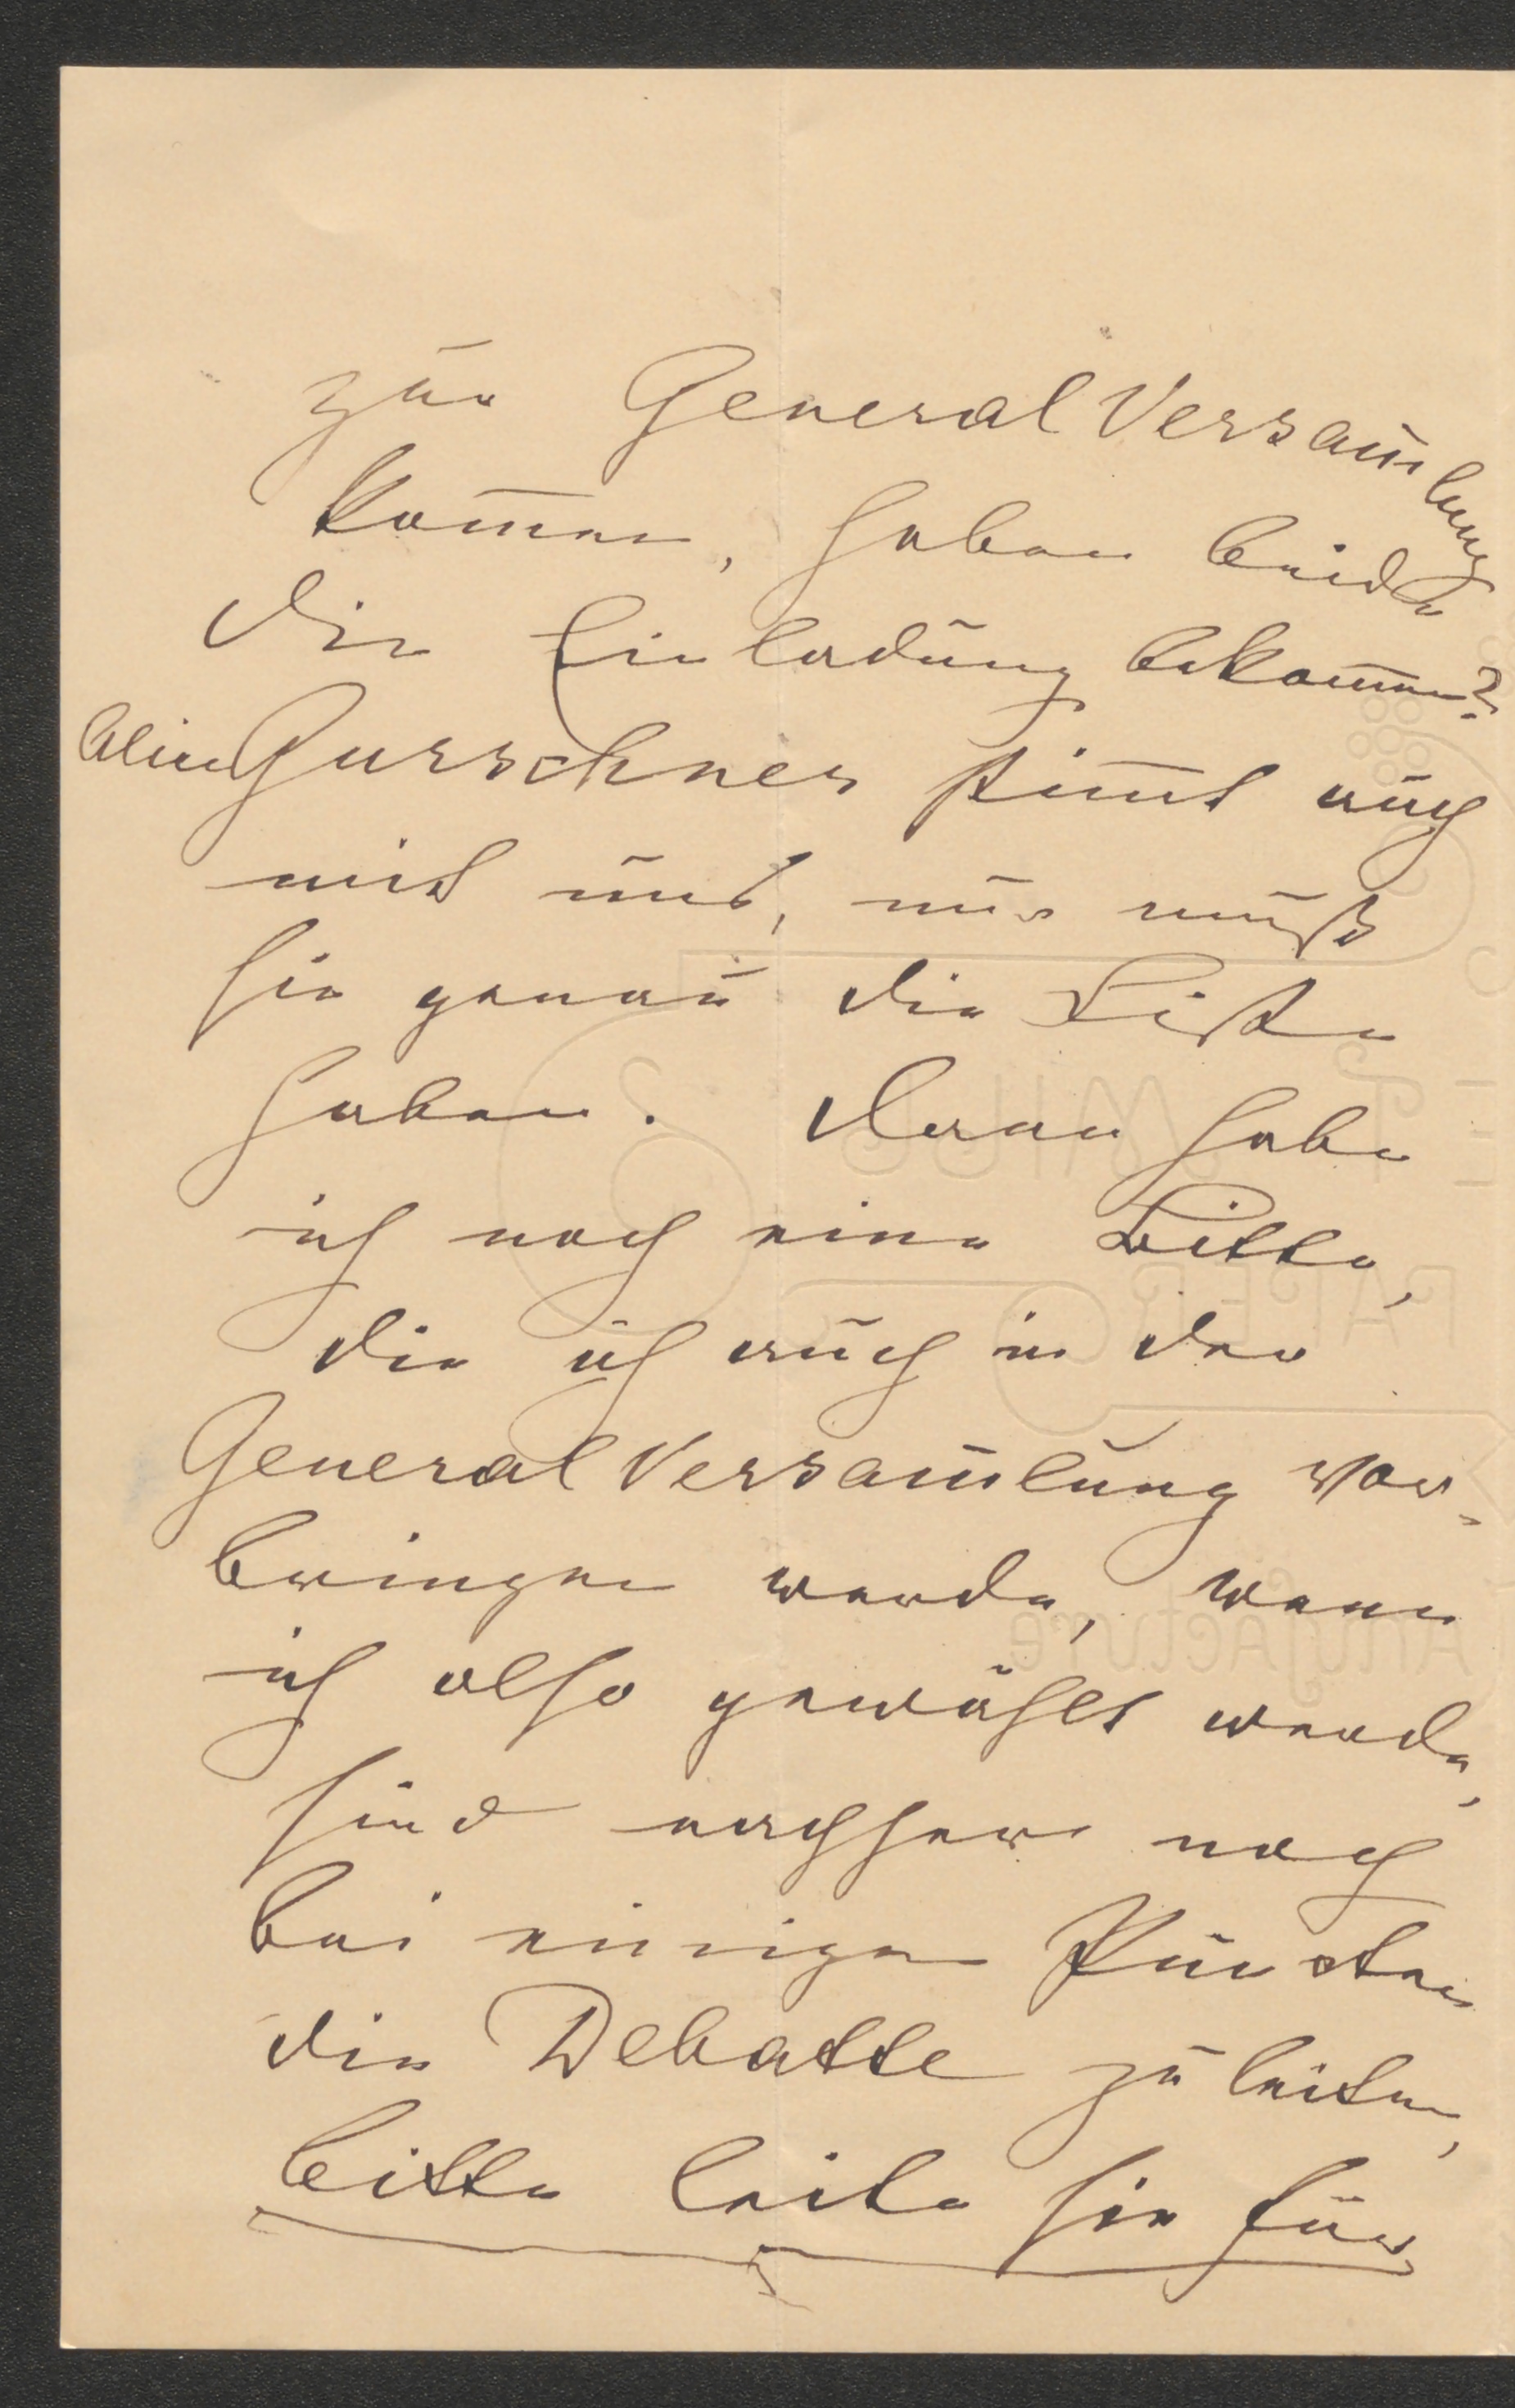 zur General Versam̅lung
kom̅en, haben beide
die Einladung bekom̅en?
Alice Gurschner stim̅t auch
mit uns, nur muß
sie genau die Liste
haben. Dann habe
ich noch eine Bitte,
die ich auch in der
General Versam̅lung vor-
bringen werde, wenn
ich also gewählt werde,
sind nachher noch
bei einigen Puncten
die Debatte zu leiten,
bitte leite sie für